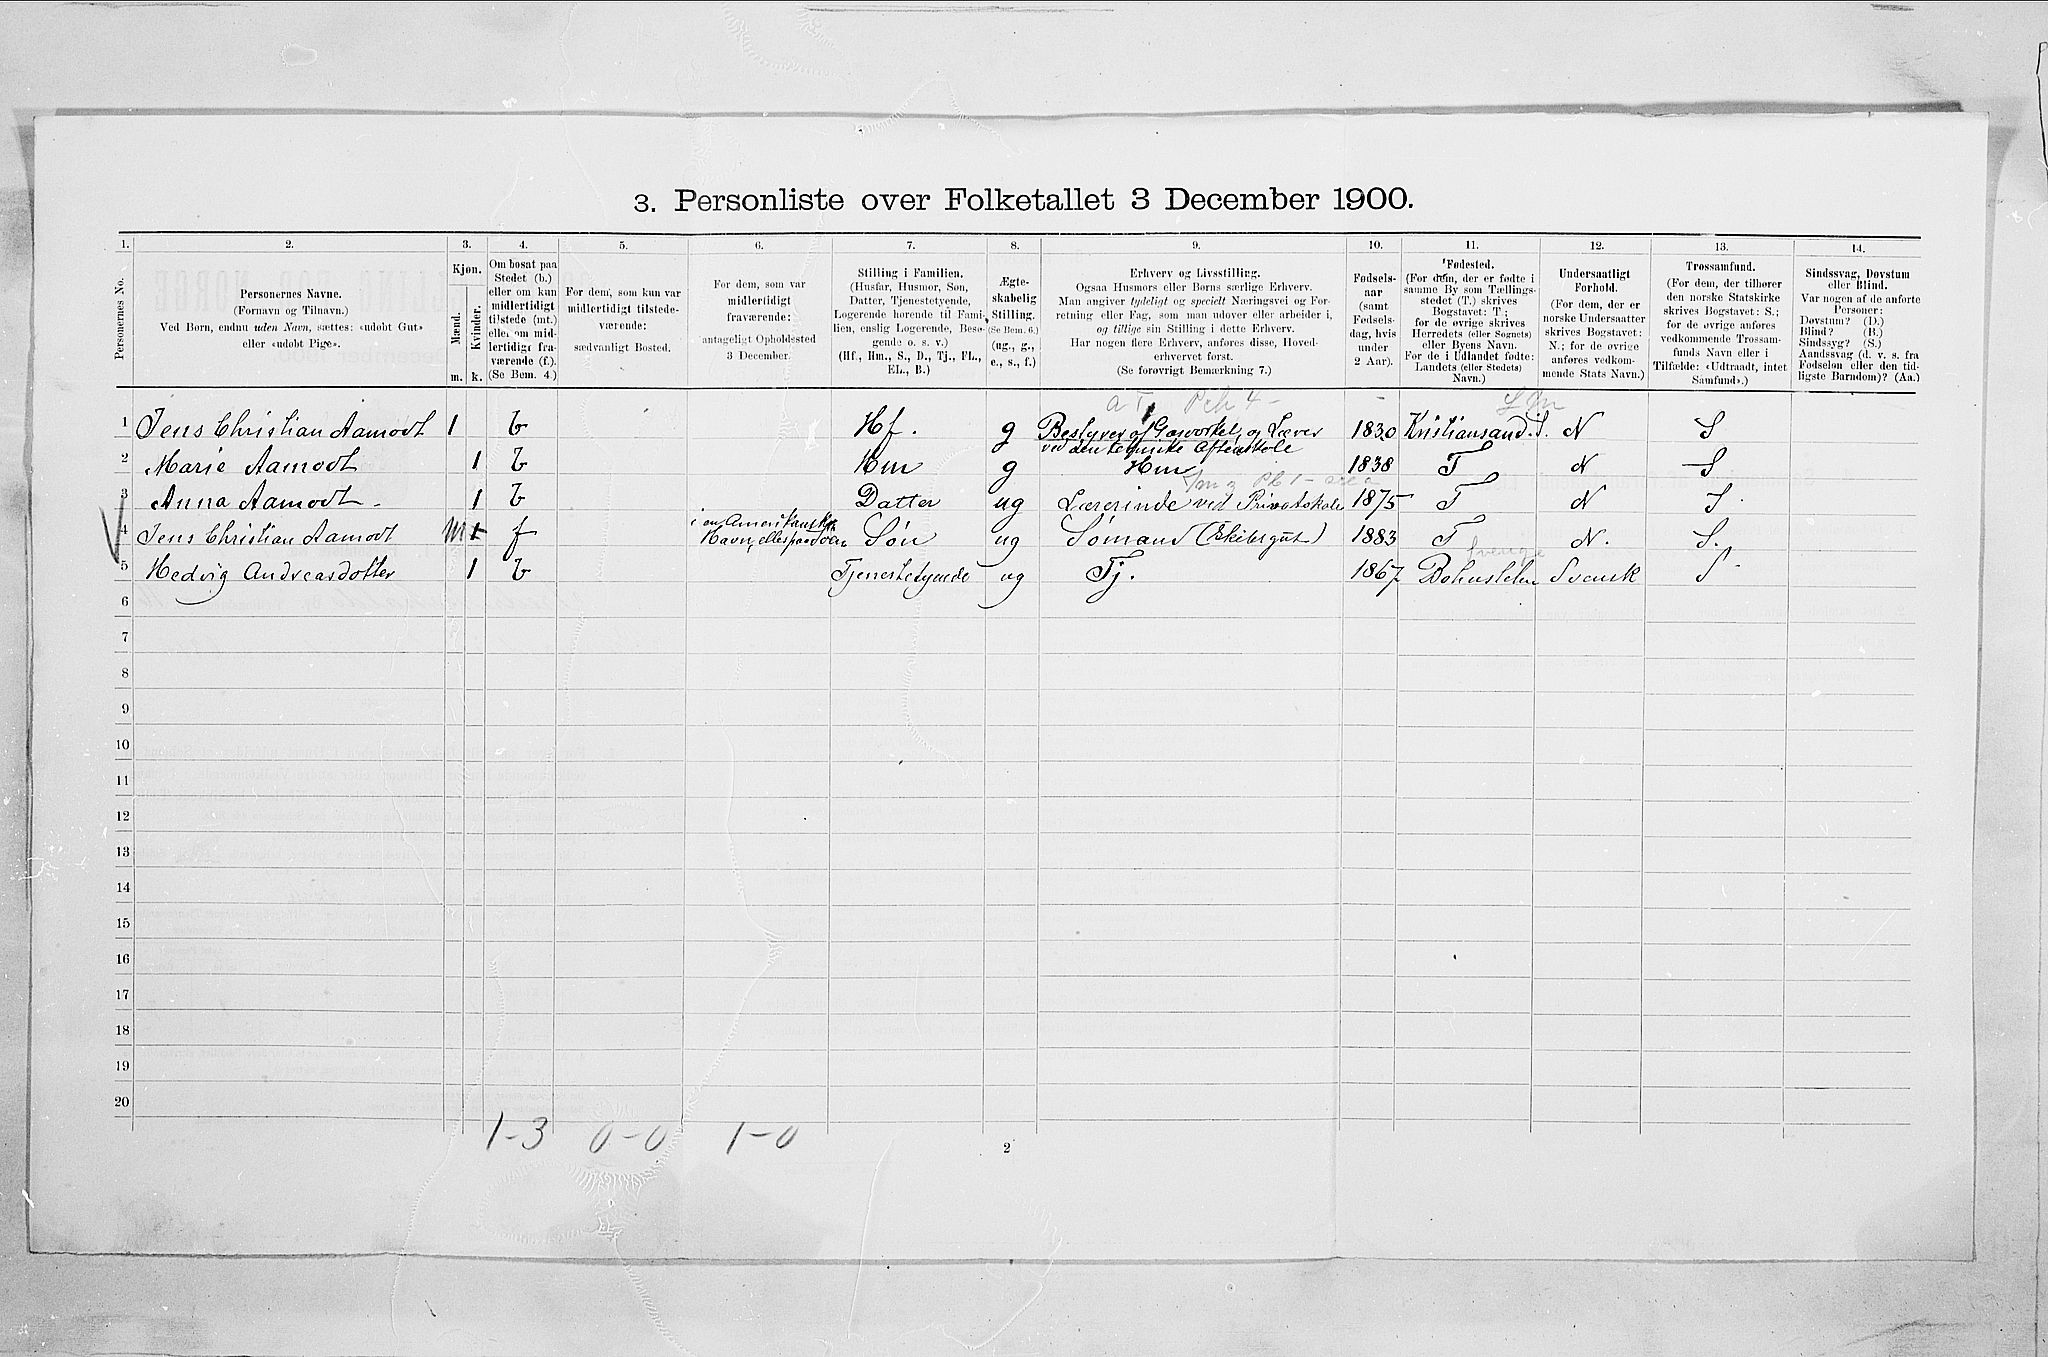 3. Personliste over Folketallet 3 December 1900.
1. 2. 3. 4. 5. 6. 7. 8. 9. 10. 11. 12. 13. 14.
Personernes No.
Personernes Navne.
(Fornavn og Tilnavn.)
Ved Børn, endnu uden Navn, sættes: «udøbt Gut»
eller «udøbt Pige».
Kjøn.
Mænd.
Kvinder.
m. k.
Om bosat paa
Stedet (b.)
eller om kun
midlertidigt
tilstede (mt.)
eller om mid-
lertidigt fra-
værende (f.).
(Se Bem. 4.)
For dem, som kun var
midlertidigt tilstede-
værende:
sædvanligt Bosted.
For dem, som var
midlertidigt
fraværende:
antageligt Opholdssted
3 December.
Stilling i Familien.
(Husfar, Husmor, Søn,
Datter, Tjenestetyende,
Logerende hørende til Fami-
lien, enslig Logerende, Besø-
gende o. s. v.)
(Hf., Hm., S., D., Tj., FL.,
EL., B.)
Ægte-
skabelig
Stilling.
(Se Bem. 6.)
(ug., g.,
e., s., f.)
Erhverv og Livsstilling.
Ogsaa Husmors eller Børns særlige Erhverv.
Man angiver tydeligt og specielt Næringsvei og For-
retning eller Fag, som man udøver eller arbeider i,
og tillige sin Stilling i dette Erhverv.
Har nogen flere Erhverv, anføres disse, Hoved-
erhvervet først.
(Se forøvrigt Bemærkning 7.)
Fødsels-
aar
(samt
Fødsels-
dag, hvis
under
2 Aar).
Fødested.
(For dem, der er fødte i
samme By som Tællings-
stedet (T.) skrives
Bogstavet: T;
for de øvrige skrives
Herredets (eller Sognets)
eller Byens Navn.
For de i Udlandet fødte:
Landets (eller Stedets)
Navn.)
Undersaatligt
Forhold.
(For dem, der er
norske Undersaatter
skrives Bogstavet:
N.; for de øvrige
anføres vedkom-
mende Stats Navn.)
Trossamfund.
(For dem, der tilhører
den norske Statskirke
skrives Bogstavet: S.;
for de øvrige anføres
vedkommende Trossam-
funds Navn eller i
Tilfælde: «Udtraadt, intet
Samfund».)
Sindssvag, Døvstum
eller Blind.
Var nogen af de anførte
Personer:
Døvstum? (D.)
Blind? (B.)
Sindssyg? (S.)
Aandssvag (d. v. s. fra
Fødselen eller den tid-
ligste Barndom)? (Aa.)
1 Jens Christian Aamodt 1 b Hf. g Bestyrer af Gasværket, og Lærer 1830 Kristiansand. S. N S
ved den tekniske Aftenskole
2 Marie Aamodt 1 b Hm g Hm 1838 T N S
3 Anna Aamodt 1 b Datter ug Lærerinde ved Privatskole 1875 T N S.
i en Amerikansk
4 Jens Christian Aamodt 1 f Havn, eller paa Søen Søn ug Sømand (Skibsgut) 1883 T N. S.
Sverige
5 Hedvig Andreasdotter 1 b Tjenestetyende ug Tj. 1867 Bohuslehn Svensk S
6
7
8
9
10
11
12
13
14
15
16
17
18
19
20
1-3 0-0 1-0
2